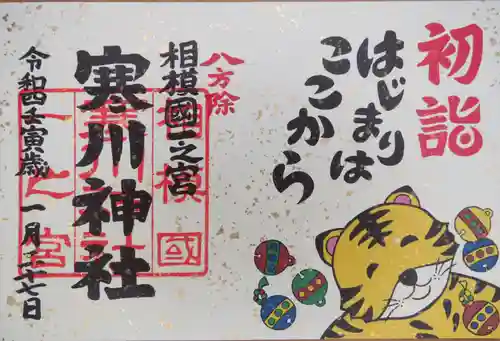 初詣
はじまりは
ここから
八方除
相模國一之宮
寒川神社
令和四壬寅歳 一月二十七日